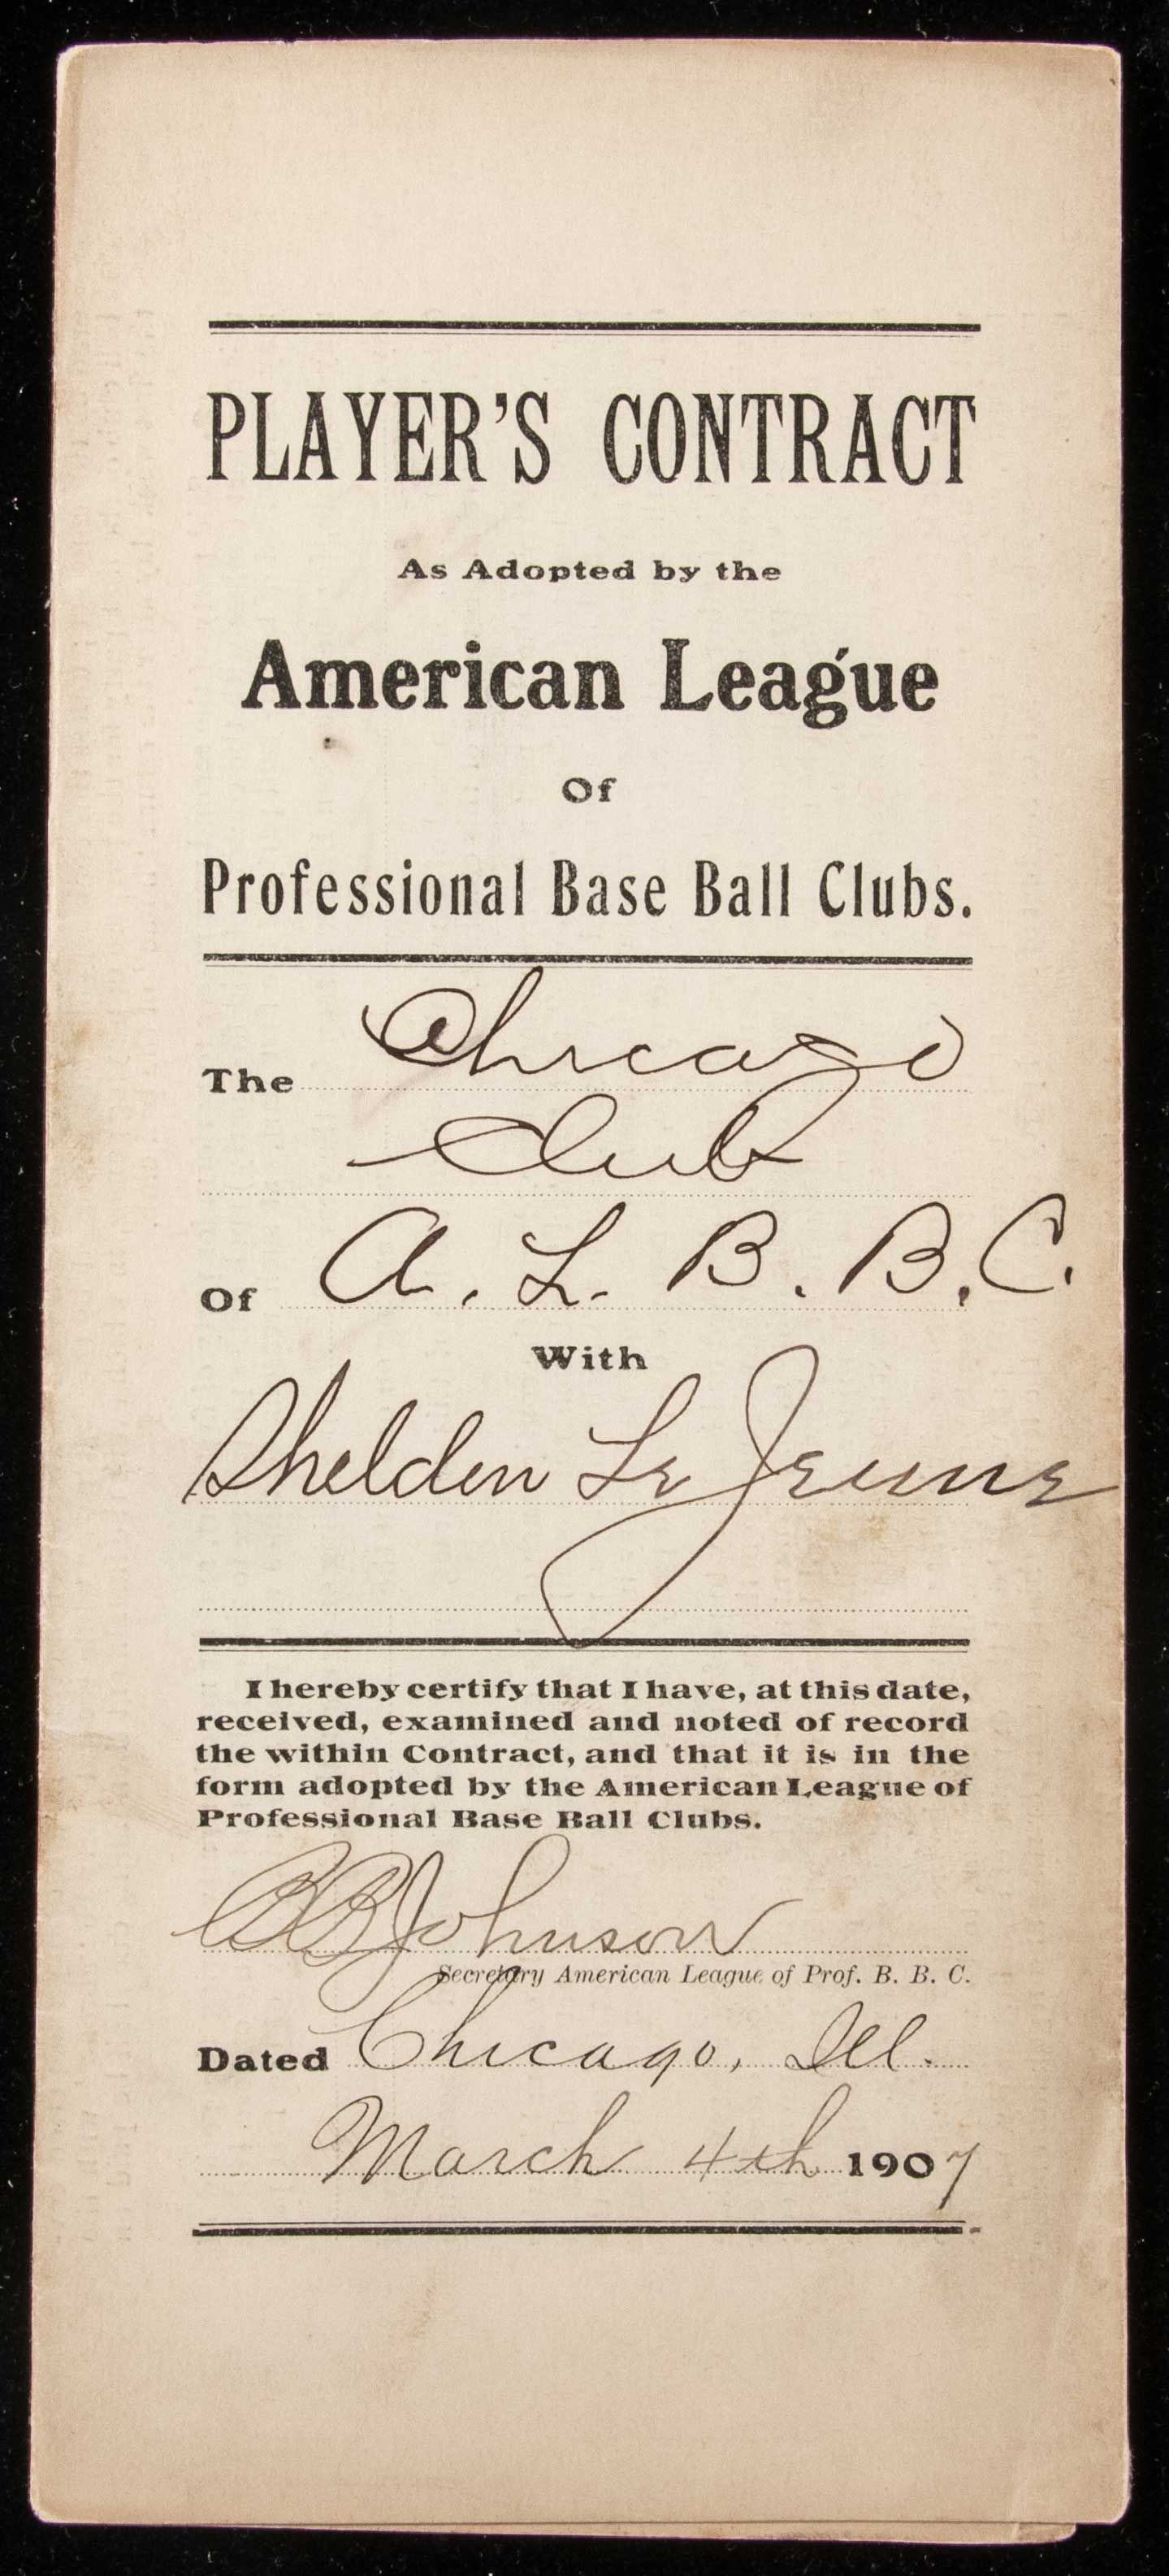 PLAYER'S CONTRACT
As Adopted by the
American League
Of
Professional Base Ball Clubs.
The Chicago
Club
Of A. L. B. B. C.
With
Sheldon Le Jeune
I hereby certify that I have, at this date,
received, examined and noted of record
the within Contract, and that it is in the
form adopted by the American League of
Professional Base Ball Clubs.
BBJohnson
Secretary American League of Prof. B. B. C.
Dated Chicago, Ill.
March 4th 1907